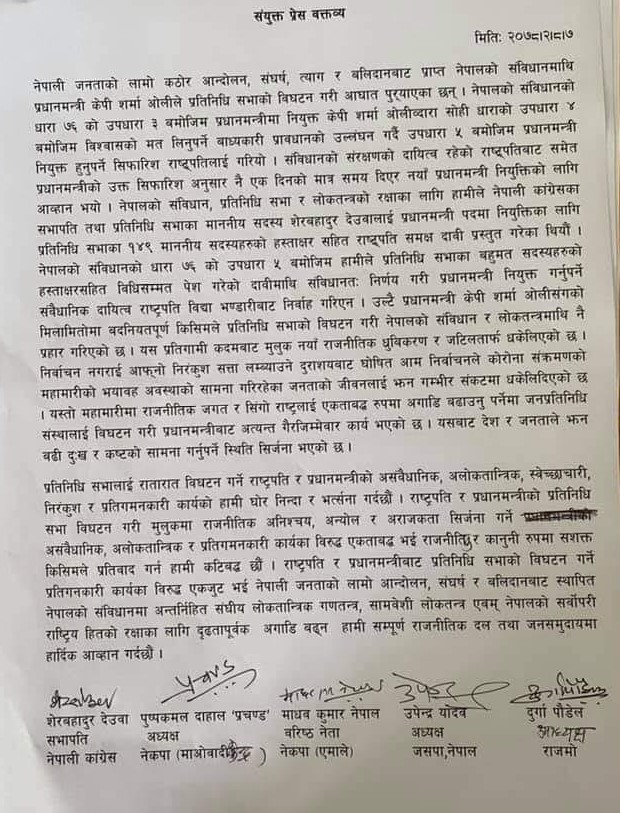 संयुक्त प्रेस वक्तव्य
मितिः २०७८।२।८।७
नेपाली जनताको लामो कठोर आन्दोलन, संघर्ष, त्याग र बलिदानबाट प्राप्त नेपालको संविधानमाथि
प्रधानमन्त्री केपी शर्मा ओलीले प्रतिनिधि सभाको विघटन गरी आघात पुर्‍याएका छन् । नेपालको संविधानको
धारा ७६ को उपधारा ३ बमोजिम प्रधानमन्त्रीमा नियुक्त केपी शर्मा ओलीव्दारा सोही धाराको उपधारा ४
बमोजिम विश्वासको मत लिनुपर्ने बाध्यकारी प्रावधानको उल्लंघन गर्दै उपधारा ५ बमोजिम प्रधानमन्त्री
नियुक्त हुनुपर्ने सिफारिश राष्ट्रपतिलाई गरियो । संविधानको संरक्षणको दायित्व रहेको राष्ट्रपतिबाट समेत
प्रधानमन्त्रीको उक्त सिफारिश अनुसार नै एक दिनको मात्र समय दिएर नयाँ प्रधानमन्त्री नियुक्तिको लागि
आव्हान भयो । नेपालको संविधान, प्रतिनिधि सभा र लोकतन्त्रको रक्षाका लागि हामीले नेपाली कांग्रेसका
सभापति तथा प्रतिनिधि सभाका माननीय सदस्य शेरबहादुर देउवालाई प्रधानमन्त्री पदमा नियुक्तिका लागि
प्रतिनिधि सभाका १४९ माननीय सदस्यहरुको हस्ताक्षर सहित राष्ट्रपति समक्ष दावी प्रस्तुत गरेका थियौं ।
नेपालको संविधानको धारा ७६ को उपधारा ५ बमोजिम हामीले प्रतिनिधि सभाका बहुमत सदस्यहरुको
हस्ताक्षरसहित विधिसम्मत पेश गरेको दावीमाथि संविधानतः निर्णय गरी प्रधानमन्त्री नियुक्त गर्नुपर्ने
संवैधानिक दायित्व राष्ट्रपति विद्या भण्डारीबाट निर्वाह गरिएन । उल्टै प्रधानमन्त्री केपी शर्मा ओलीसंगको
मिलामितोमा बदनियतपूर्ण किसिमले प्रतिनिधि सभाको विघटन गरी नेपालको संविधान र लोकतन्त्रमाथि नै
प्रहार गरिएको छ । यस प्रतिगामी कदमबाट मुलुक नयाँ राजनीतिक ध्रुविकरण र जटिलतार्फ धकेलिएको छ ।
निर्वाचन नगराई आफ्नो निरंकुश सत्ता लम्ब्याउने दुराशयबाट घोषित आम निर्वाचनले कोरोना संक्रमणको
महामारीको भयावह अवस्थाको सामना गरिरहेका जनताको जीवनलाई झन गम्भीर संकटमा धकेलिदिएको छ
। यस्तो महामारीमा राजनीतिक जगत र सिंगो राष्ट्रलाई एकताबद्ध रुपमा अगाडि बढाउनु पर्नेमा जनप्रतिनिधि
संस्थालाई विघटन गरी प्रधानमन्त्रीबाट अत्यन्त गैरजिम्मेवार कार्य भएको छ । यसबाट देश र जनताले झन
बढी दुःख र कष्टको सामना गर्नुपर्ने स्थिति सिर्जना भएको छ ।
प्रतिनिधि सभालाई रातारात विघटन गर्ने राष्ट्रपति र प्रधानमन्त्रीको असंवैधानिक, अलोकतान्त्रिक, स्वेच्छाचारी,
निरंकुश र प्रतिगमनकारी कार्यको हामी घोर निन्दा र भर्त्सना गर्दछौं । राष्ट्रपति र प्रधानमन्त्रीको प्रतिनिधि
सभा विघटन गरी मुलुकमा राजनीतिक अनिश्चय, अन्योल र अराजकता सिर्जना गर्ने
असंवैधानिक, अलोकतान्त्रिक र प्रतिगमनकारी कार्यका विरुद्ध एकताबद्ध भई राजनीतिक र कानुनी रुपमा सशक्त
किसिमले प्रतिवाद गर्न हामी कटिबद्ध छौं । राष्ट्रपति र प्रधानमन्त्रीबाट प्रतिनिधि सभाको विघटन गर्ने
प्रतिगमनकारी कार्यका विरुद्ध एकजुट भई नेपाली जनताको लामो आन्दोलन, संघर्ष र बलिदानबाट स्थापित
नेपालको संविधानमा अन्तर्निहित संघीय लोकतान्त्रिक गणतन्त्र, सामवेशी लोकतन्त्र एवम् नेपालको सर्वोपरी
राष्ट्रिय हितको रक्षाका लागि दृढतापूर्वक अगाडि बढ्न हामी सम्पूर्ण राजनीतिक दल तथा जनसमुदायमा
हार्दिक आव्हान गर्दछौं ।
शेरबहादुर देउवा पुष्पकमल दाहाल 'प्रचण्ड' माधव कुमार नेपाल उपेन्द्र यादव दुर्गा पौडेल
सभापति अध्यक्ष वरिष्ठ नेता अध्यक्ष अध्यक्ष
नेपाली कांग्रेस नेकपा (माओवादी केन्द्र) नेकपा (एमाले) जसपा,नेपाल राजमो